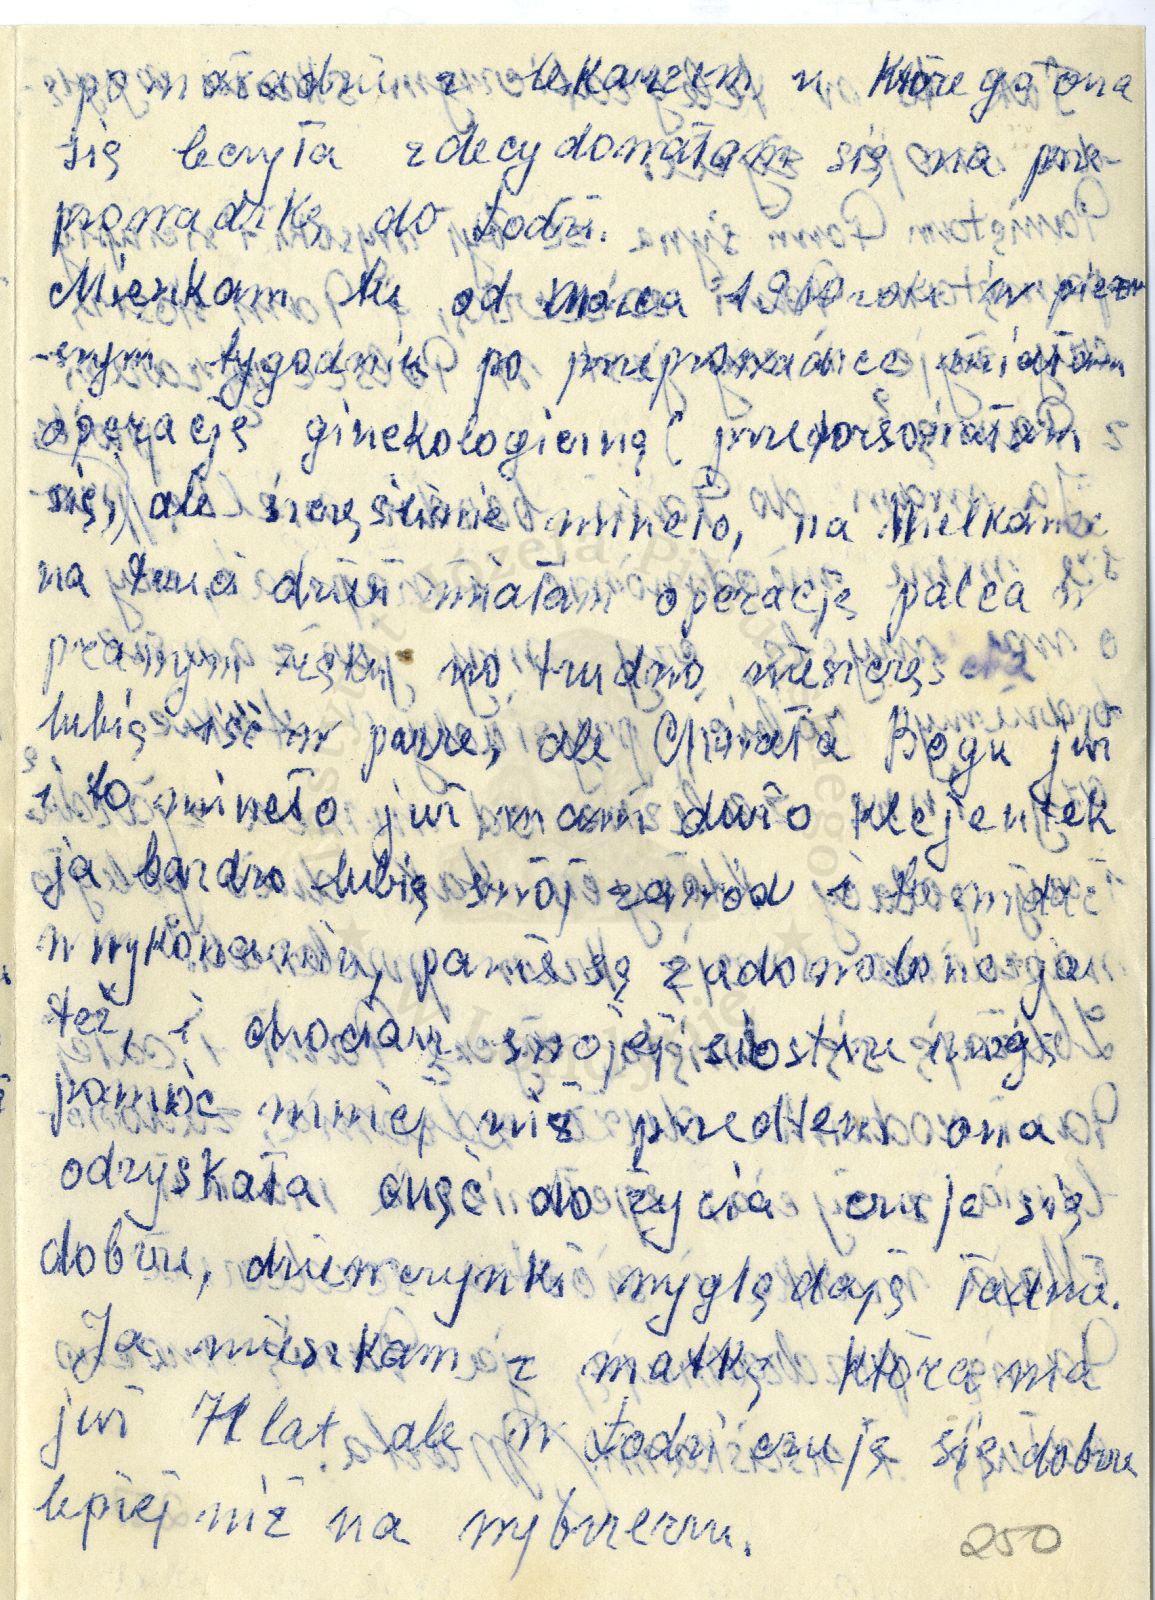 po naradzie z lekarzem u którego ona
się leczyła zdecydowałam się na prze-
prowadzkę do Łodzi.
Mieszkam tu od marca 1980 roku w pierw
-szym tygodniu po przeprowadzce miałam
operację ginekologiczną (przeforsowałam
się) ale szczęśliwie mineło, na Wielkanoc
na drugi dzień miałam operację palca u
prawym ręku no trudno nieszczęścia
lubią iść w parze, ale Chwała Bogu już
i to mineło już mam dużo klejentek
ja bardzo lubię swój zawód i to widać
w wykonaniu, panie są zadowolone ja
też, i chociaż swojej siostrze mogę
pomóc mniej niż przedtem ona
odzyskała chęć do życia czuje się
dobrze, dziewczynki wyglądają ładnie.
Ja mieszkam z matką która ma
już 71 lat ale w Łodzi czuję się dobrze
lepiej niż na wybrzerzu.
250
Instytut Józefa Piłsudskiego
w Londynie